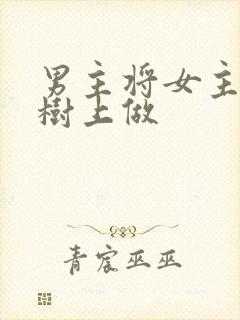 男主将女主
樹上做
青宸巫巫